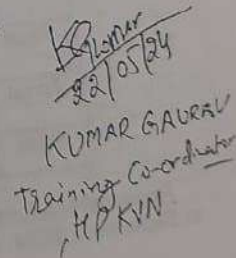 KGkumar
22/05/24
KUMAR GAURAV
Training Co-ordinator
HPKVN